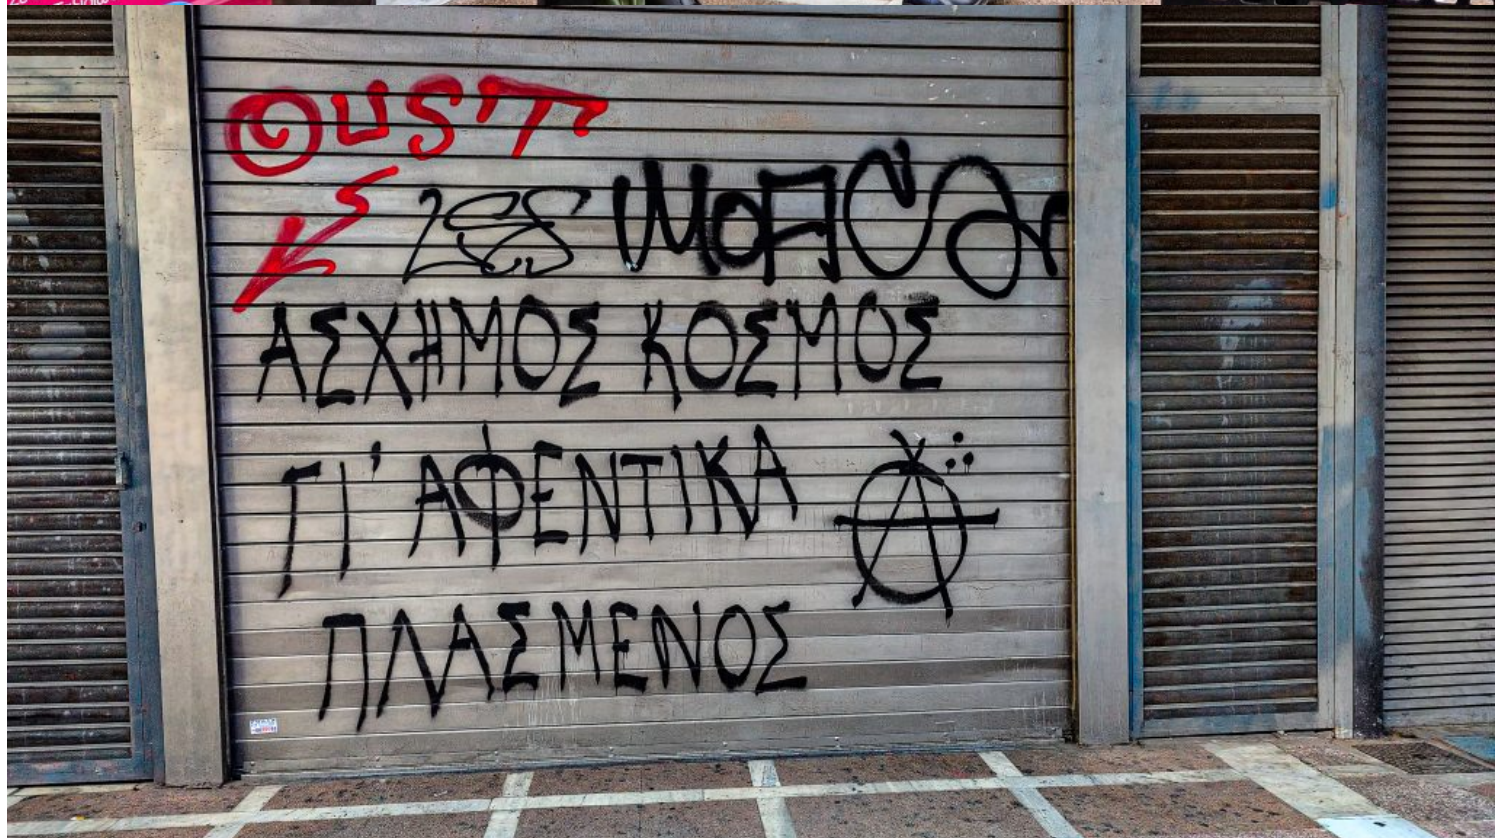 OUST
ΑΣΧΗΜΟΣ ΚΟΣΜΟΣ
ΓΙ' ΑΦΕΝΤΙΚΑ
ΠΛΑΣΜΕΝΟΣ